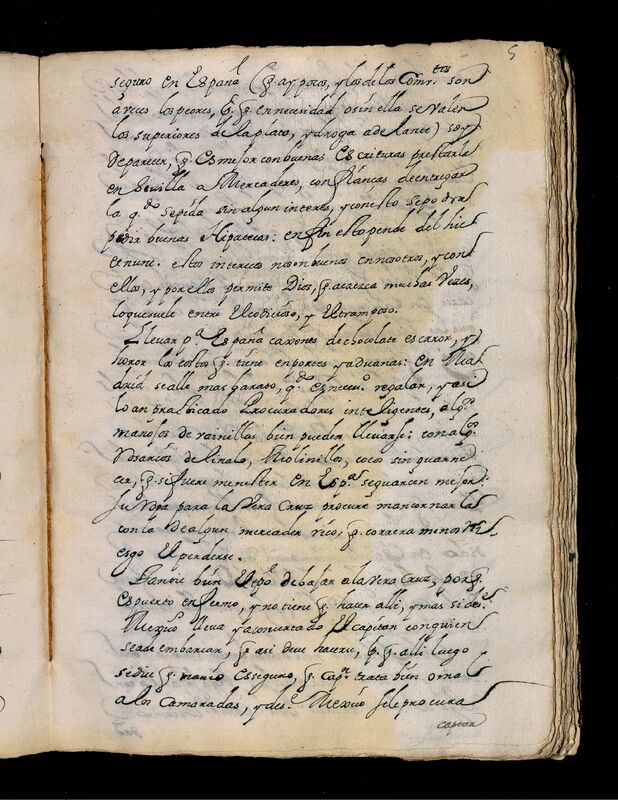 5
seguro en España (q̃ ay pocos, y los de los Com.tes son
aveces los peores, p. q̃ en necesidad o sin ella se valen
los superiores de la plata, y droga adelante) soy
de parecer, q̃ es mejor con buenas escrituras prestarla
en Sevilla a Mercaderes, con fianças de entregar
la q.do se pida sin algun interes, y con esto se podra
pedir buenas Hipotecas: en fin esto pende del hic
et nunc. estos intereses no son buenos en nosotros, y con
ellos, y por ellos permite Dios, q̃ acaezca muchas vezes,
lo que suele entre el codicioso, y el tramposo.
Llevar p.a España caxones de chocolate es error, y
horror la costa q̃ tiene en portes y aduanas: en Ma
drid se alla mas barato, q.do es neces.o regalar, y asi
lo an practicado Procuradores inteligentes, alg.s
manojos de vainillas bien pueden llevarse: con alg.s
Rosarios de linalo, Molinillos, cocos sin guarne
cer, q̃ si fuere menester en Esp.a se guarcen mejor:
su ropa para la Vera Cruz procure mancornarla
con la de algun mercader rico, q̃ correra menos ri
esgo el perderse.
bien el tpo de bajar a la Vera Cruz, porq̃
es puerto enfermo, y no tiene q̃ hacer alli, y mas si des.e
Mexico lleva ya concertado el capitan con quien
se a de embarcar, q̃ asi deve hacerse, p. q̃ alli luego
se dice q̃ navio es seguro, q̃ cap.n trata bien o mal
a los camaradas, y des.e Mexico se le procura
captar